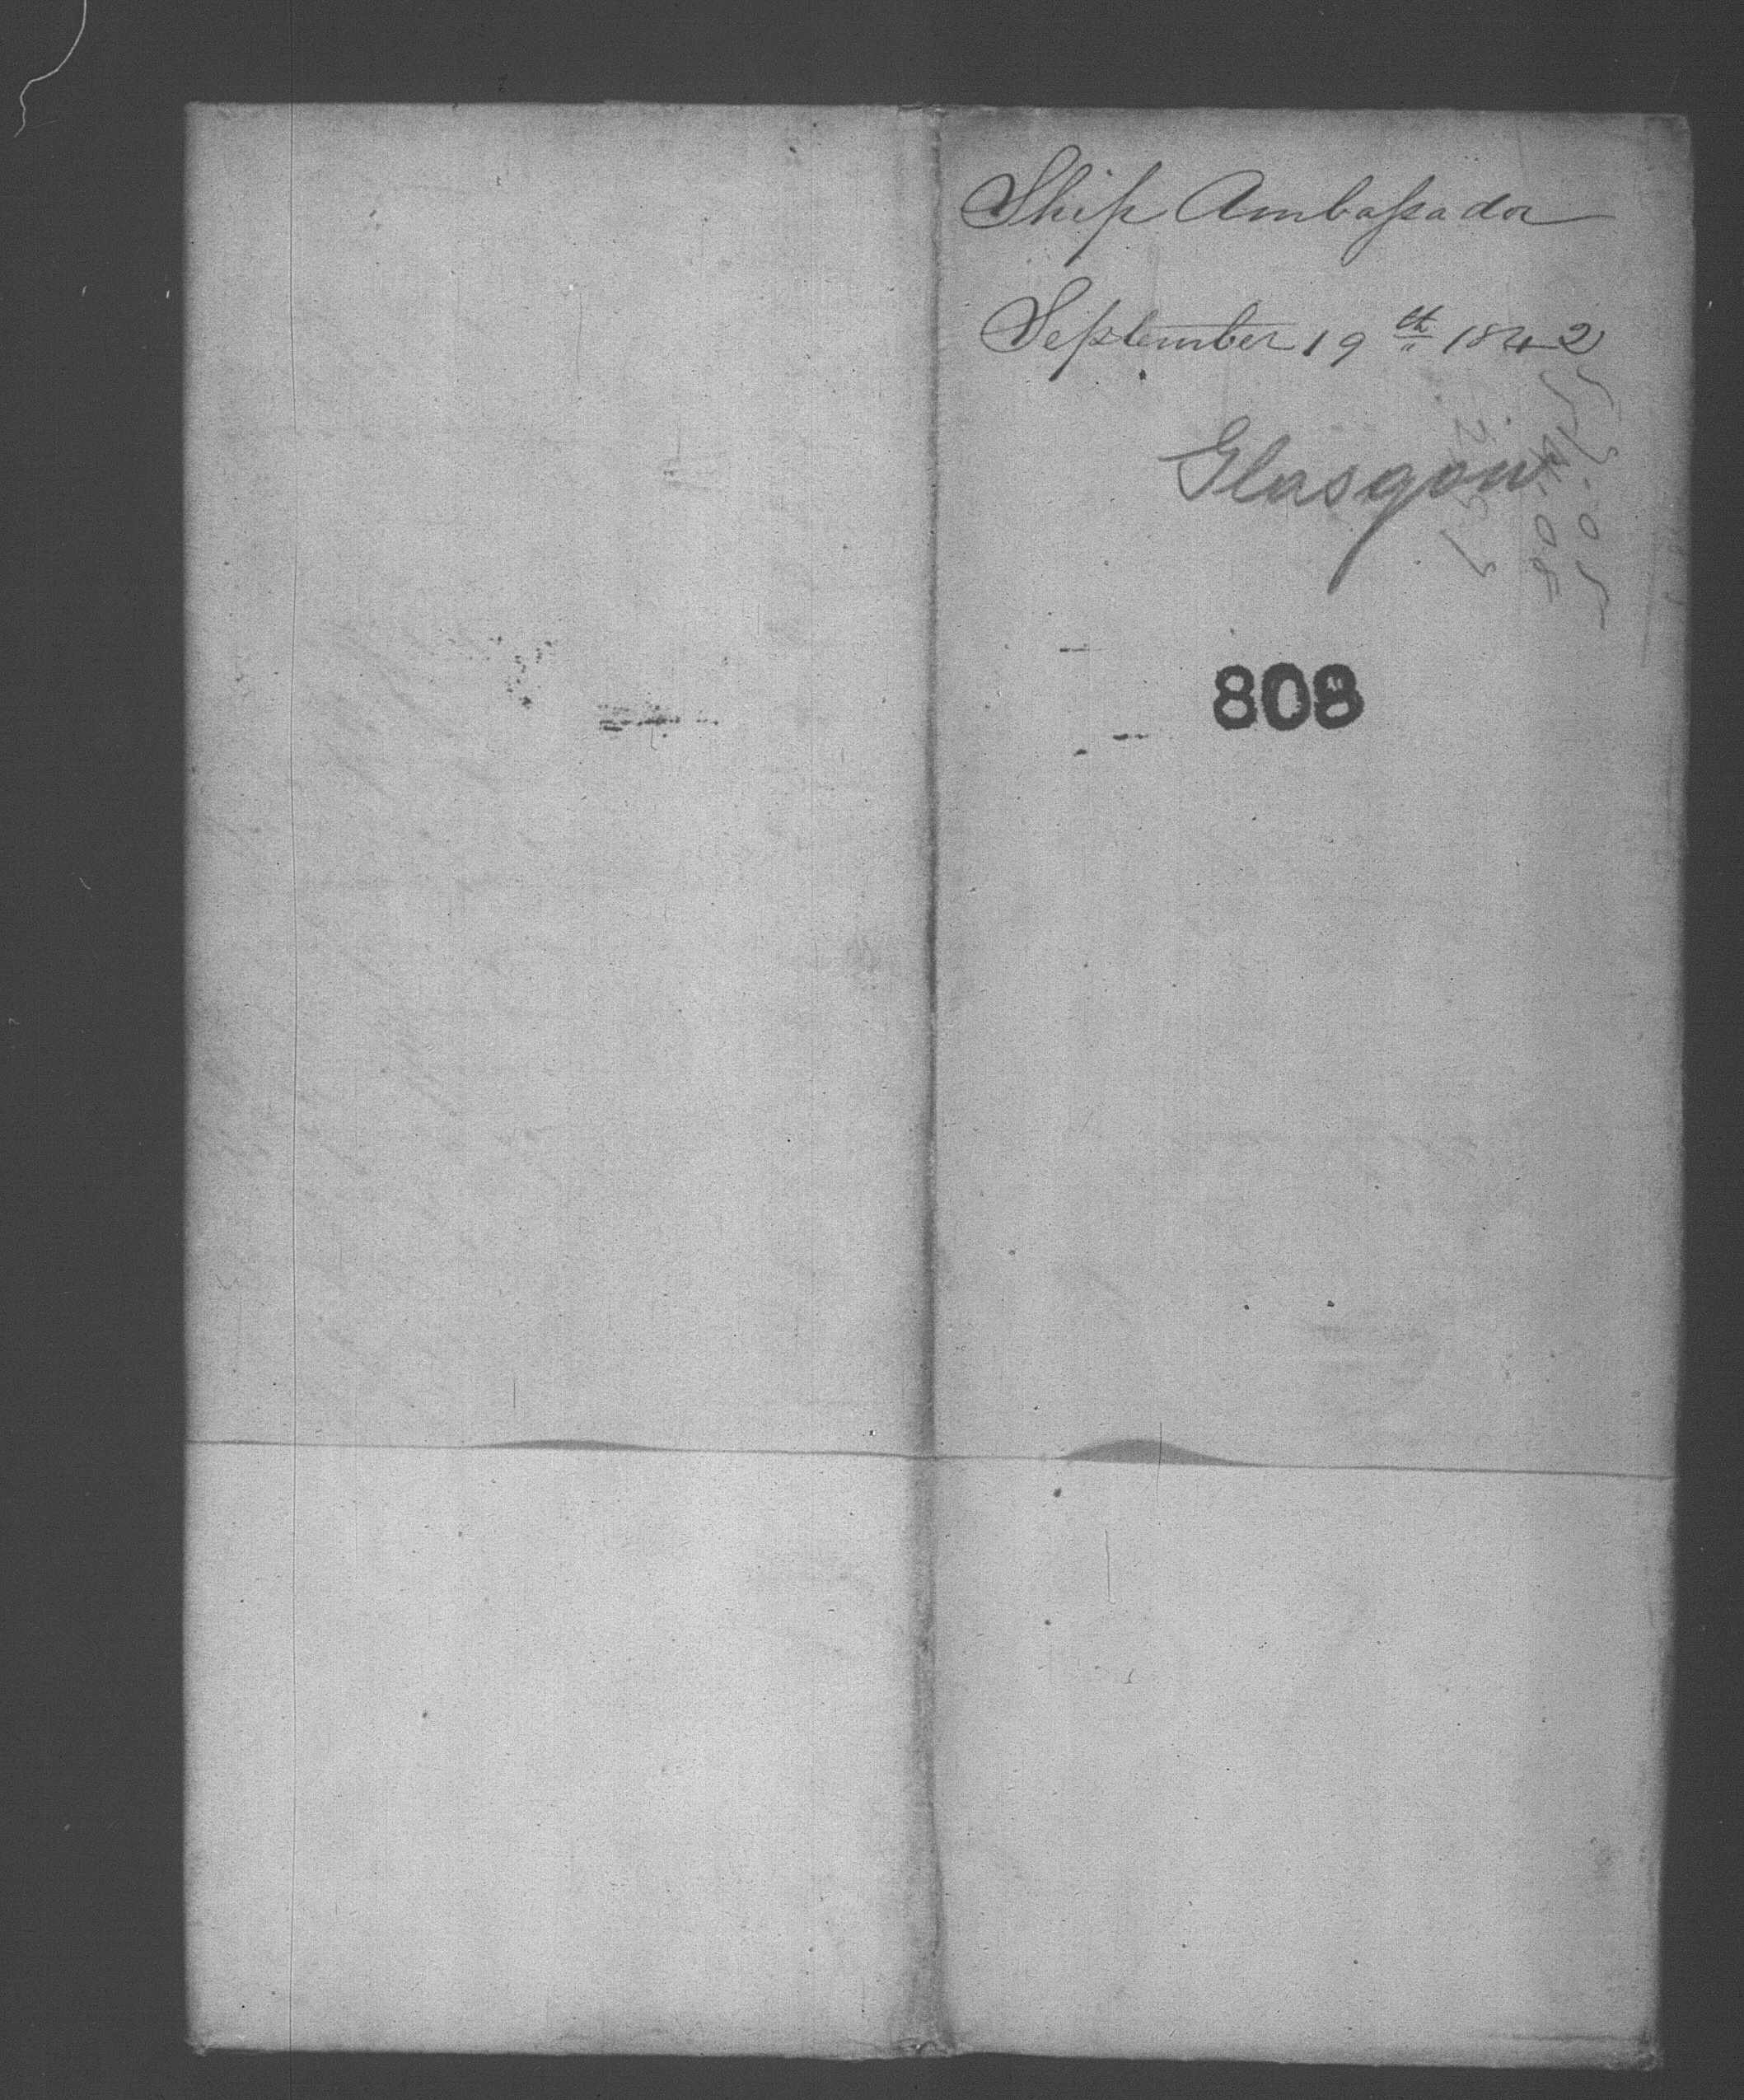 Ship Ambaſsador
September 19th 1842
Glasgow
808